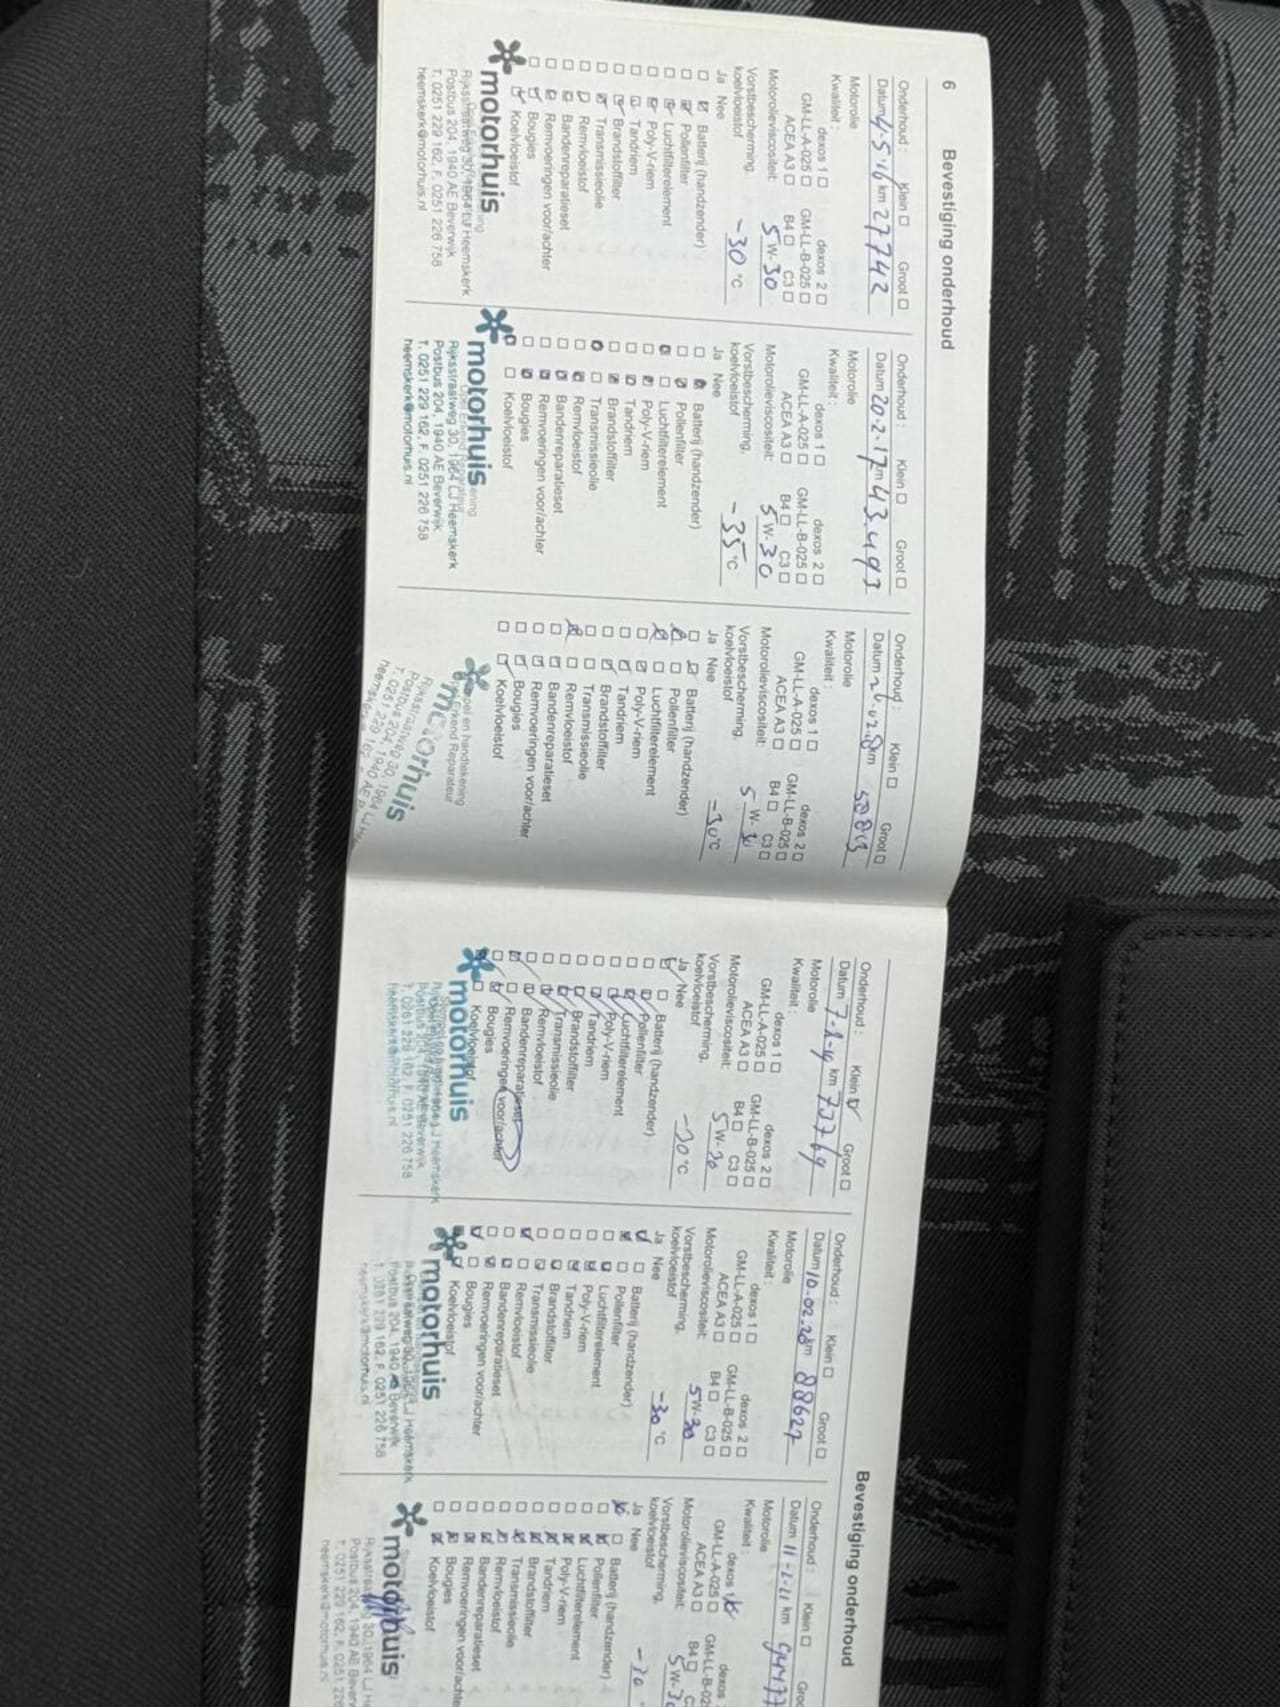 6 Bevestiging onderhoud
Onderhoud : Klein ☐ Groot ☐
Datum 4-5-16 km 27742
Motorolie
Kwaliteit :
dexos 1 ☐ dexos 2 ☐
GM-LL-A-025 ☐ GM-LL-B-025 ☐
ACEA A3 ☐ B4 ☐ C3 ☐
Motorolieviscositeit: 5 W- 30
Vorstbescherming.
koelvloeistof -30 °C
Ja Nee
Batterij (handzender)
Pollenfilter
Luchtfilterelement
Poly-V-riem
Tandriem
Brandstoffilter
Transmissieolie
Remvloeistof
Bandenreparatieset
Remvoeringen voor/achter
Bougies
Koelvloeistof
motorhuis
Rijksstraatweg 30, 1964 LJ Heemskerk
Postbus 204, 1940 AE Beverwijk
T. 0251 229 162, F. 0251 226 758
heemskerk@motorhuis.nl
Onderhoud : Klein ☐ Groot ☐
Datum 20-2-17 km 43.493
Motorolie
Kwaliteit :
dexos 1 ☐ dexos 2 ☐
GM-LL-A-025 ☐ GM-LL-B-025 ☐
ACEA A3 ☐ B4 ☐ C3 ☐
Motorolieviscositeit: 5 W- 30
Vorstbescherming.
koelvloeistof -35 °C
Ja Nee
Batterij (handzender)
Pollenfilter
Luchtfilterelement
Poly-V-riem
Tandriem
Brandstoffilter
Transmissieolie
Remvloeistof
Bandenreparatieset
Remvoeringen voor/achter
Bougies
Koelvloeistof
motorhuis
Rijksstraatweg 30, 1964 LJ Heemskerk
Postbus 204, 1940 AE Beverwijk
T. 0251 229 162, F. 0251 226 758
heemskerk@motorhuis.nl
Onderhoud : Klein ☐ Groot ☐
Datum km
Motorolie
Kwaliteit :
dexos 1 ☐ dexos 2 ☐
GM-LL-A-025 ☐ GM-LL-B-025 ☐
ACEA A3 ☐ B4 ☐ C3 ☐
Motorolieviscositeit: 5 W- 30
Vorstbescherming.
koelvloeistof -30 °C
Ja Nee
Batterij (handzender)
Pollenfilter
Luchtfilterelement
Poly-V-riem
Tandriem
Brandstoffilter
Transmissieolie
Remvloeistof
Bandenreparatieset
Remvoeringen voor/achter
Bougies
Koelvloeistof
Stempel en handtekening
Opel Erkend Reparateur
motorhuis
Bevestiging onderhoud
Onderhoud : Klein ☑ Groot ☐
Datum km 73769
Motorolie
Kwaliteit :
dexos 1 ☐ dexos 2 ☐
GM-LL-A-025 ☐ GM-LL-B-025 ☐
ACEA A3 ☐ B4 ☐ C3 ☐
Motorolieviscositeit: 5 W- 30
Vorstbescherming.
koelvloeistof -30 °C
Ja Nee
Batterij (handzender)
Pollenfilter
Luchtfilterelement
Poly-V-riem
Tandriem
Brandstoffilter
Transmissieolie
Remvloeistof
Bandenreparatieset
Remvoeringen voor/achter
Bougies
Koelvloeistof
motorhuis
Postbus 204, 1940 AE Beverwijk
T. 0251 229 162, F. 0251 226 758
heemskerk@motorhuis.nl
Onderhoud : Klein ☐ Groot ☐
Datum 10.02.20 km 88627
Motorolie
Kwaliteit :
dexos 1 ☐ dexos 2 ☐
GM-LL-A-025 ☐ GM-LL-B-025 ☐
ACEA A3 ☐ B4 ☐ C3 ☐
Motorolieviscositeit: 5 W- 30
Vorstbescherming.
koelvloeistof -30 °C
Ja Nee
Batterij (handzender)
Pollenfilter
Luchtfilterelement
Poly-V-riem
Tandriem
Brandstoffilter
Transmissieolie
Remvloeistof
Bandenreparatieset
Remvoeringen voor/achter
Bougies
Koelvloeistof
motorhuis
Postbus 204, 1940 AE Beverwijk
T. 0251 229 162, F. 0251 226 758
heemskerk@motorhuis.nl
Onderhoud : Klein ☐
Datum km
Motorolie
Kwaliteit :
dexos 1 ☑ dexos
GM-LL-A-025 ☐ GM-LL-B-02
ACEA A3 ☐ B4 ☐
Motorolieviscositeit: 5 W-
Vorstbescherming.
koelvloeistof
Ja Nee
Batterij (handzender)
Pollenfilter
Luchtfilterelement
Poly-V-riem
Tandriem
Brandstoffilter
Transmissieolie
Remvloeistof
Bandenreparatieset
Remvoeringen voor/achter
Bougies
Koelvloeistof
motorhuis
Postbus 204, 1940 AE Beverwijk
heemskerk@motorhuis.nl